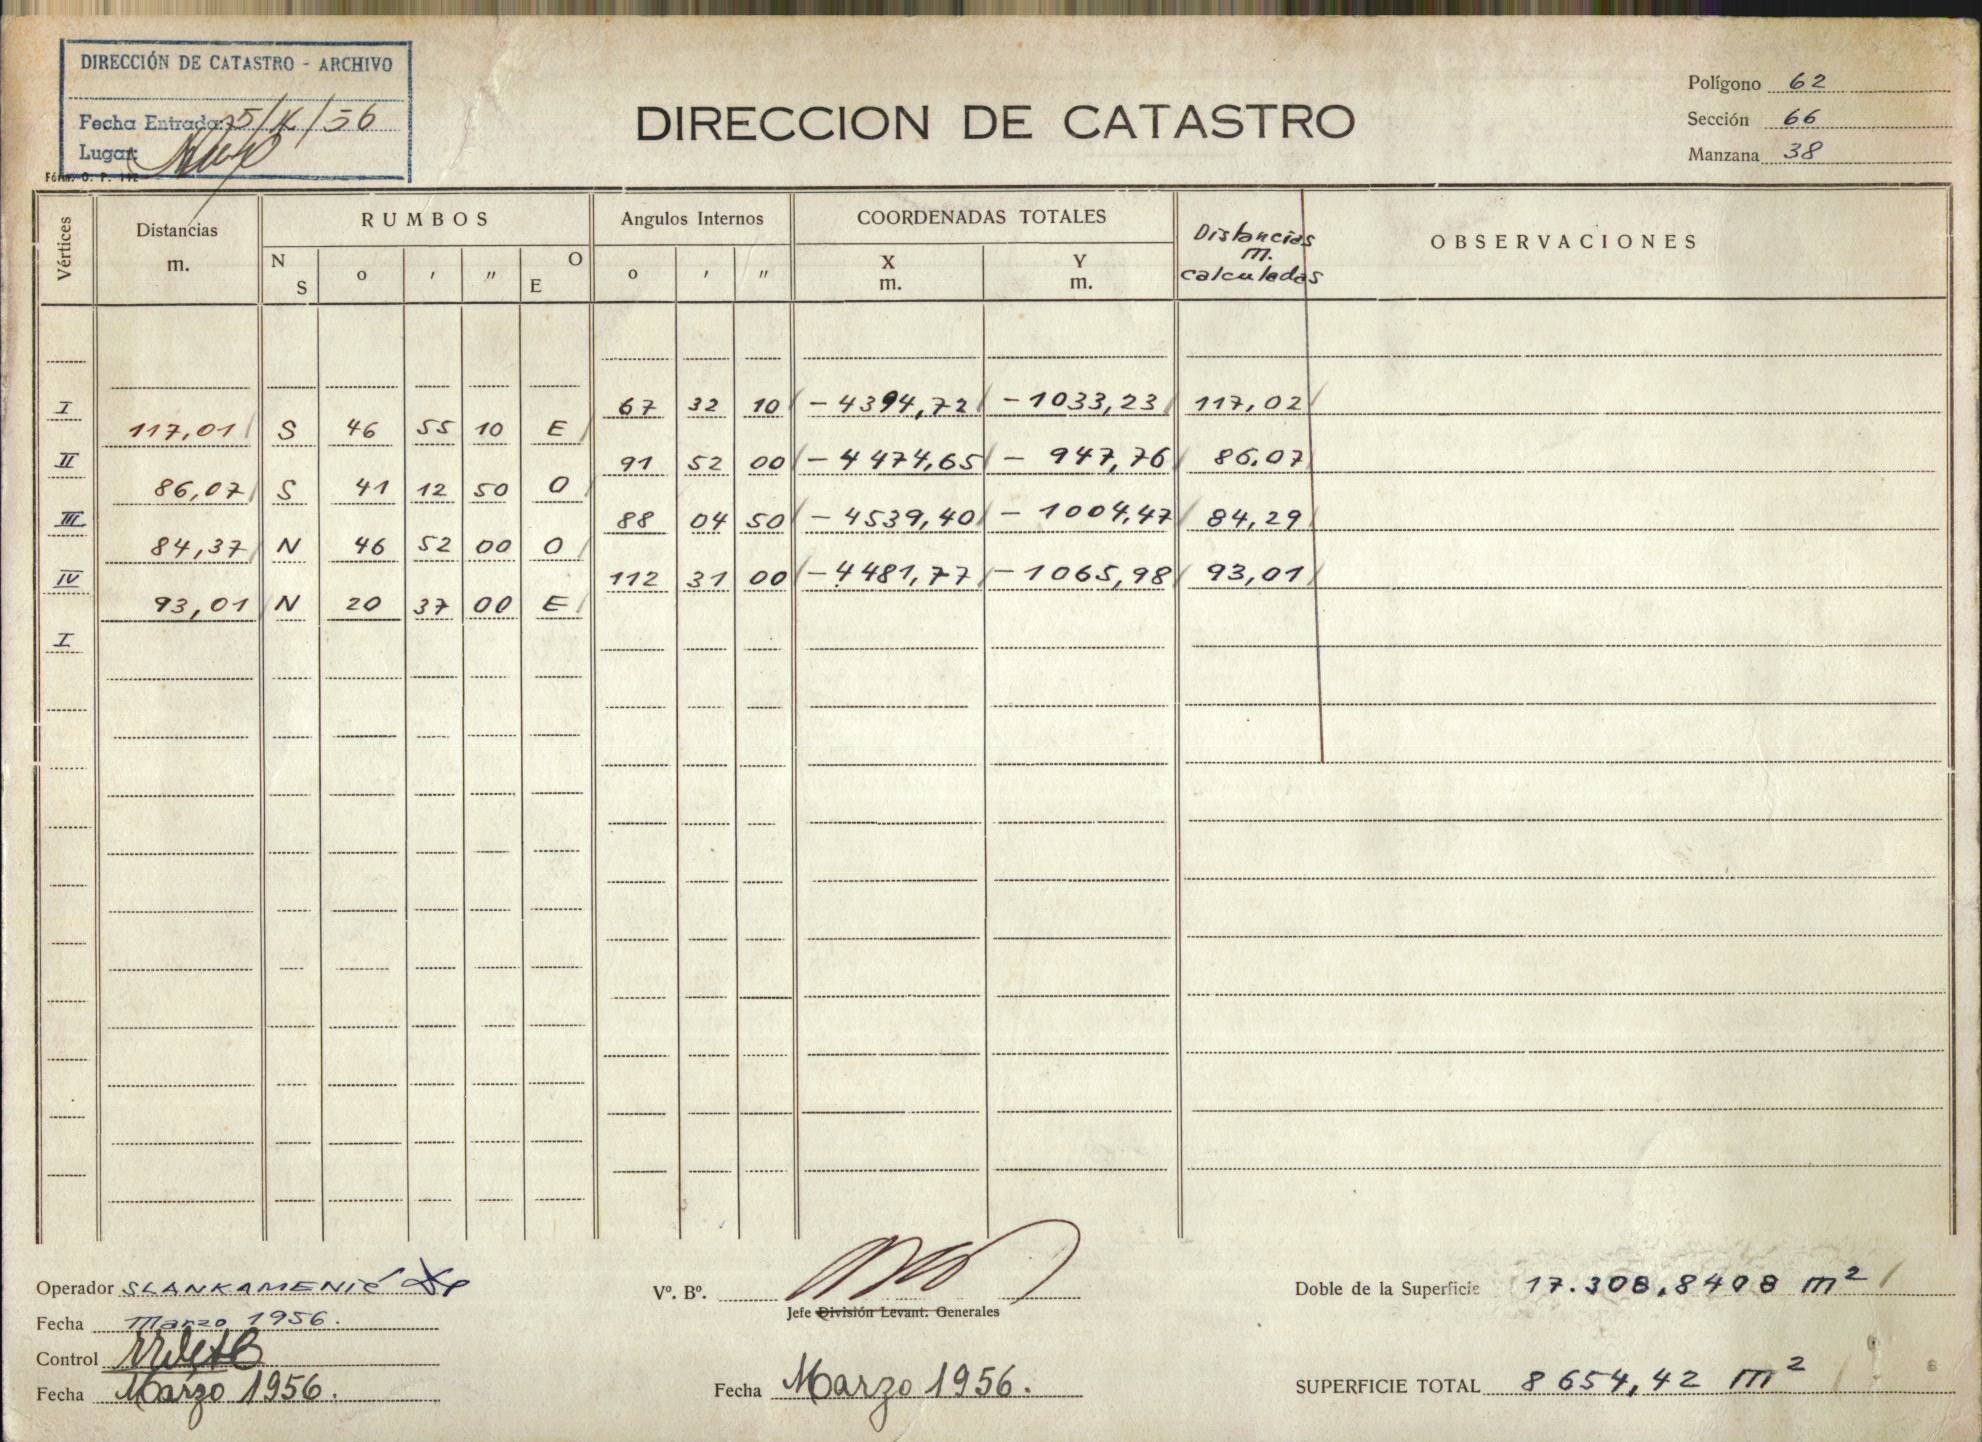 DIRECCIÓN DE CATASTRO - ARCHIVO
Fecha Entrada: 5/X/56
Lugar:
Fórm. O. P. 192
DIRECCION DE CATASTRO
Polígono 62
Sección 66
Manzana 38
Vértices Distancias m. RUMBOS Angulos Internos COORDENADAS TOTALES Distancias m. calculadas OBSERVACIONES
N S o ′ ″ O E o ′ ″ X m. Y m.
I 67 32 10 - 4394,72 - 1033,23 117,02
117,01 S 46 55 10 E
II 91 52 00 - 4474,65 - 947,76 86,07
86,07 S 41 12 50 O
III 88 04 50 - 4539,40 - 1004,47 84,29
84,37 N 46 52 00 O
IV 112 31 00 - 4481,77 - 1065,98 93,01
93,01 N 20 37 00 E
I
Operador SLANKAMENIĆ
Fecha Marzo 1956.
Control
Fecha Marzo 1956.
Vº. Bº.
Jefe División Levant. Generales
Fecha Marzo 1956.
Doble de la Superficie 17.308,8408 m²
SUPERFICIE TOTAL 8654,42 m²